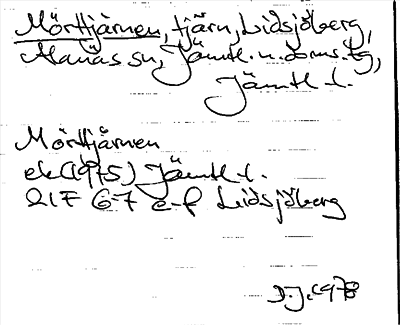 Mörttjärnen, tjärn, Lidsjöberg,
Alanäs sn, Jämtl. n. doms. tg,
Jämtl. l.
Mörttjärnen
ek (1975) Jämtl. l.
21F 6-7 e-f Lidsjöberg
D.J. 1978